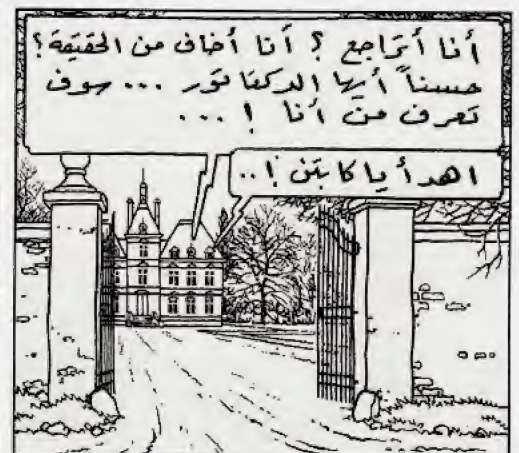 أنا أتراجع ؟ أنا أخاف من الحقيقة ؟
حسناً أيها الدكتاتور ... سوف
تعرف من أنا ! ...
اهدأ يا كابتن !..